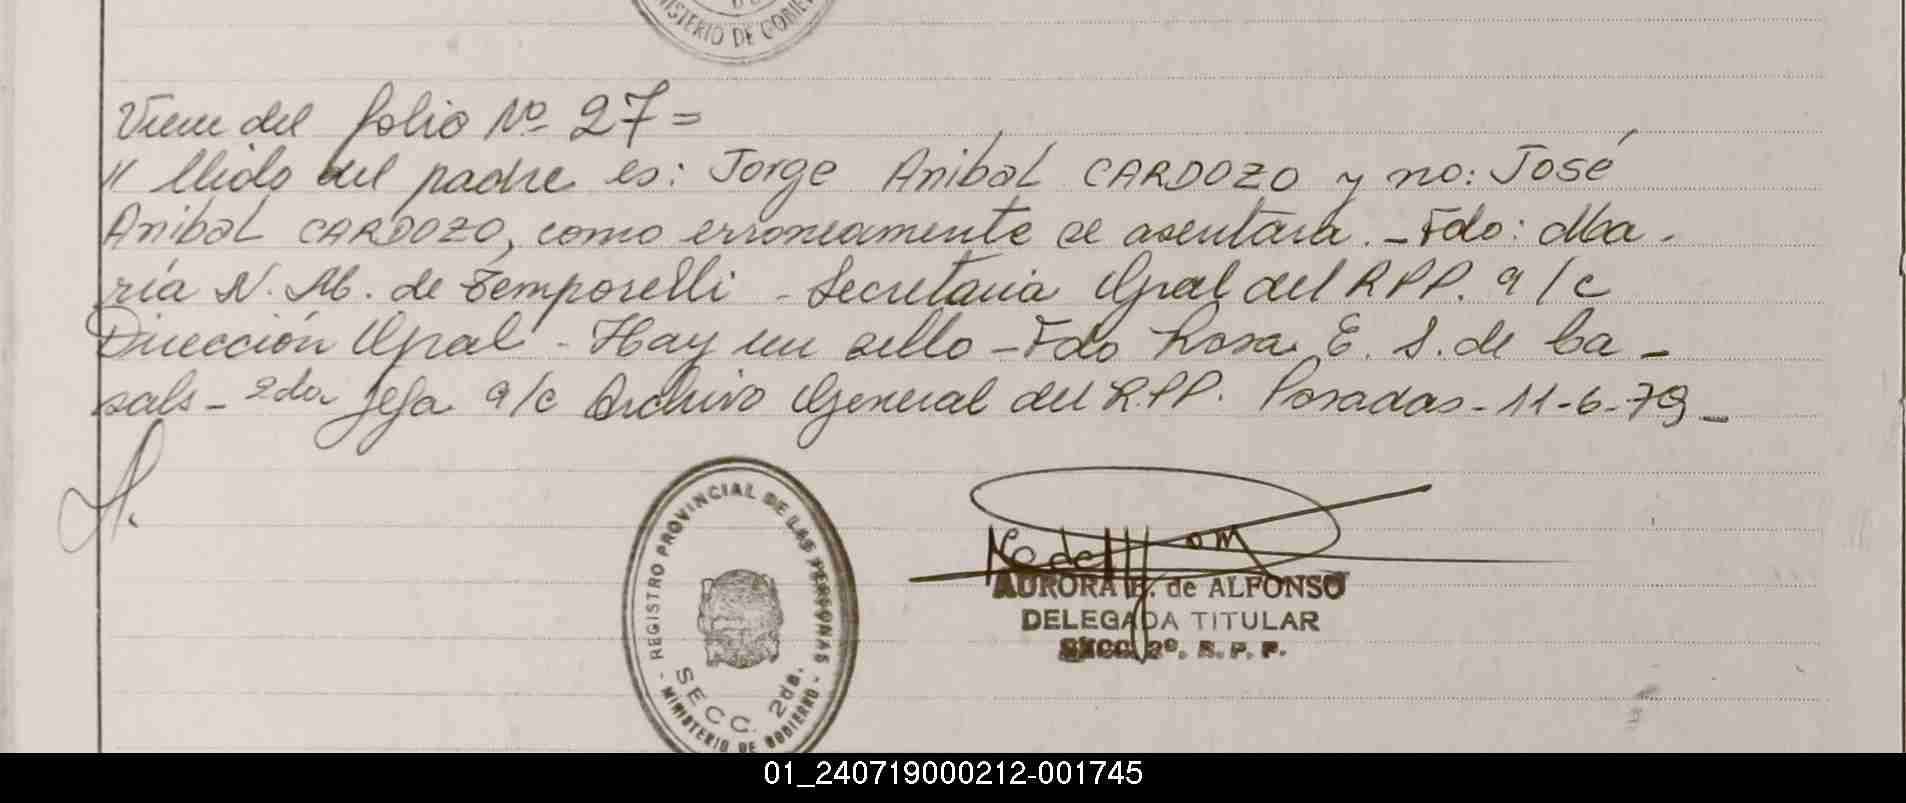 MINISTERIO DE GOBIE
Viene del folio Nº 27 =
// llido del padre es: Jorge Anibal CARDOZO y no: José
Anibal CARDOZO, como erroneamente se asentara. - Fdo: Ma-
ría N. M. de Temporelli - Secretaria Gral del RPP. a/c
Dirección Gral - Hay un sello - Fdo Rosa E. S. de Ca-
sals - 2da Jefa a/c Archivo General del R.P.P. Posadas - 11-6-79 -
REGISTRO PROVINCIAL DE LAS PERSONAS
SECC. 2da.
- MINISTERIO DE GOBIERNO -
AURORA de ALFONSO
DELEGADA TITULAR
SECC. 2º. R. P. P.
01_240719000212-001745